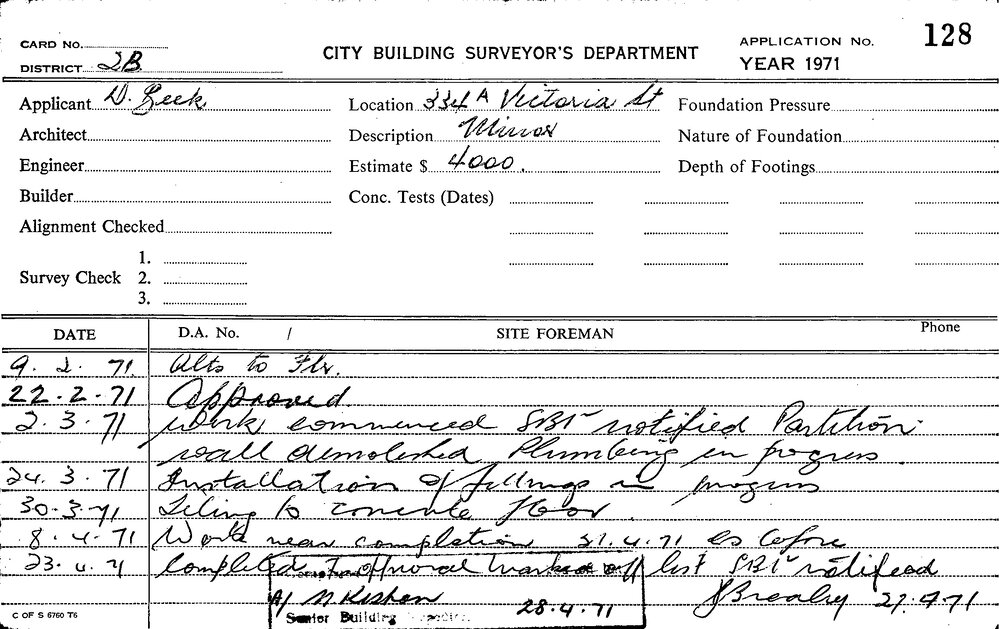 CARD No.
DISTRICT 2B
CITY BUILDING SURVEYOR'S DEPARTMENT
APPLICATION No. 128
YEAR 1971
Applicant D. Geek
Location 334A Victoria St
Foundation Pressure
Architect
Description Minor
Nature of Foundation
Engineer
Estimate $ 4000.
Depth of Footings
Builder
Conc. Tests (Dates)
Alignment Checked
Survey Check
1.
2.
3.
DATE D.A. No. / SITE FOREMAN Phone
9.2.71 Alts to Flr.
22.2.71 Approved
2.3.71 work commenced SBI notified Partition
wall demolished Plumbing in progress.
24.3.71 Installation of fittings in progress
30-3-71 Tiling to concrete floor.
8.4.71 Work near completion 21.4.71 as before
23.4.71 Completed to approval marked off list SBI notified
A/ 28.4.71
Senior Building
J Brealey 27.4.71
C OF S 6760 T6